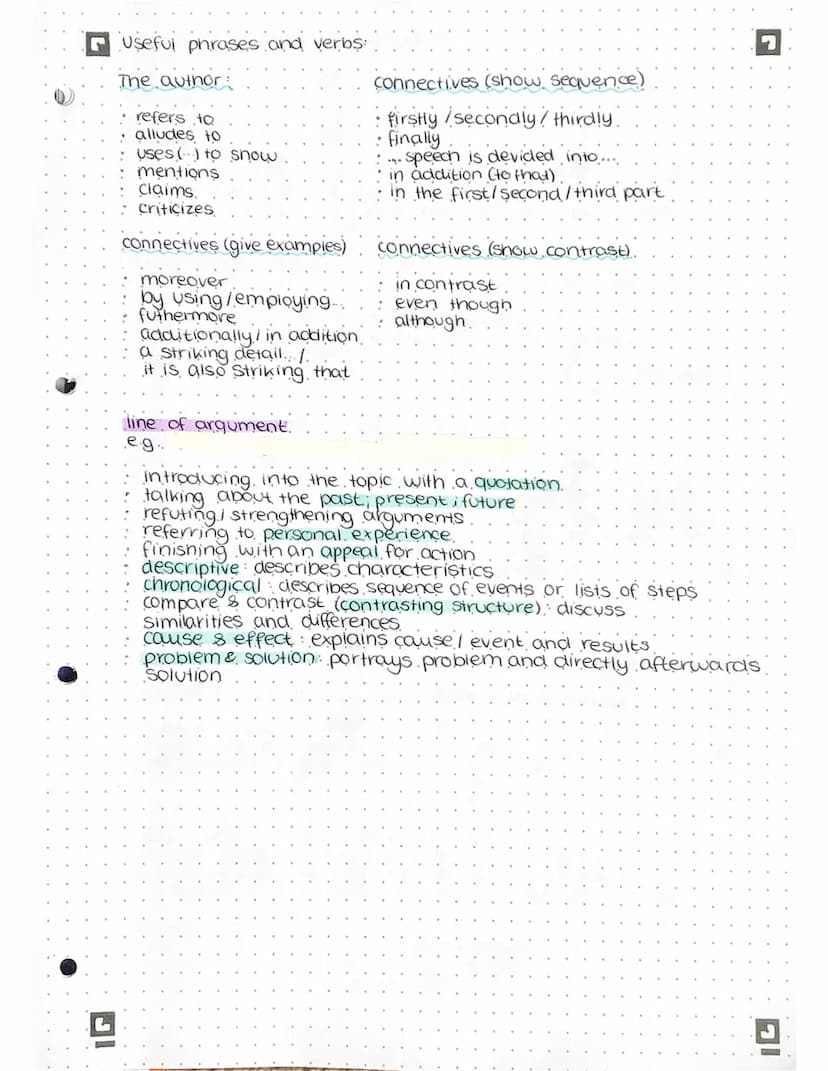 Useful phrases and verbs:
The author:
· refers to
· alludes to
· uses (...) to show
· mentions
· claims
· criticizes
connectives (show sequence)
· firstly / secondly / thirdly
· finally
· ... speech is devided into...
· in addition (to that)
· in the first / second / third part
connectives (give examples)
· moreover
· by using / employing...
· futhermore
· additionally / in addition
· a striking detail... /
it is also striking that
connectives (show contrast)
· in contrast
· even though
· although
line of argument
e.g.
· introducing into the topic with a quotation
· talking about the past, present, future
· refuting / strengthening arguments
· referring to personal experience
· finishing with an appeal for action
· descriptive: describes characteristics
· chronological: describes sequence of events or lists of steps
· compare & contrast (contrasting structure): discuss
similarities and differences
· cause & effect: explains cause / event and results
· problem & solution: portrays problem and directly afterwards
solution